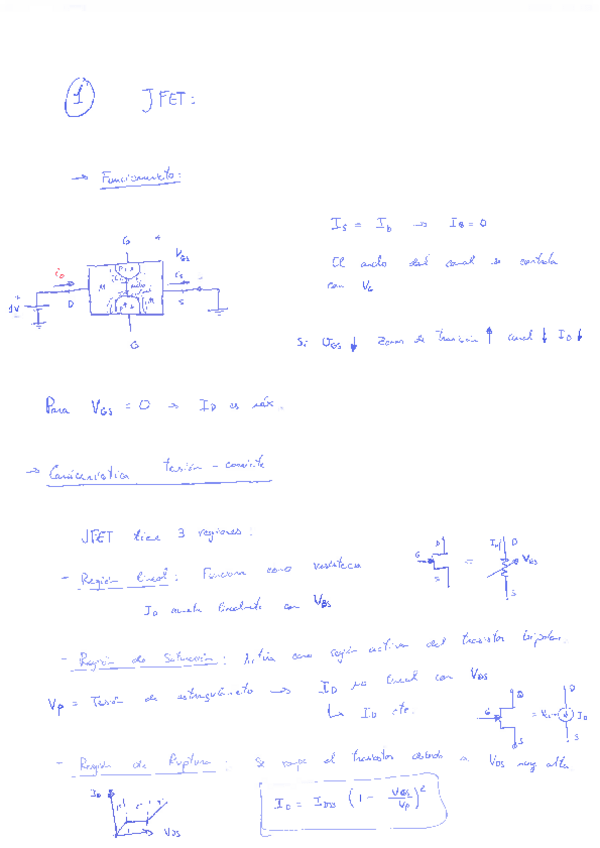 1 JFET:
→ Funcionamiento:
I_S = I_D → I_G = 0
El ancho del canal se controla
con V_G
G + V_GS
i_D i_S -
P+ N N P+
1V + D S
G
Si V_GS ↓ Zonas de transición ↑ canal ↓ I_D ↓
Para V_GS = 0 → I_D es máx.
→ Característica tensión - corriente
JFET tiene 3 regiones.
- Región lineal: Funciona como resistencia
I_D aumenta linealmente con V_DS
G D S = I_D D V_GS S
- Región de Saturación: Actúa como región activa del transistor bipolar.
V_P = Tensión de estrangulamiento → I_D no lineal con V_DS
↳ I_D cte.
G D S = V_GS D I_D S
- Región de Ruptura: Se rompe el transistor debido a V_DS muy alta
I_D V_DS
I_D = I_DSS (1 - V_GS/V_P)^2